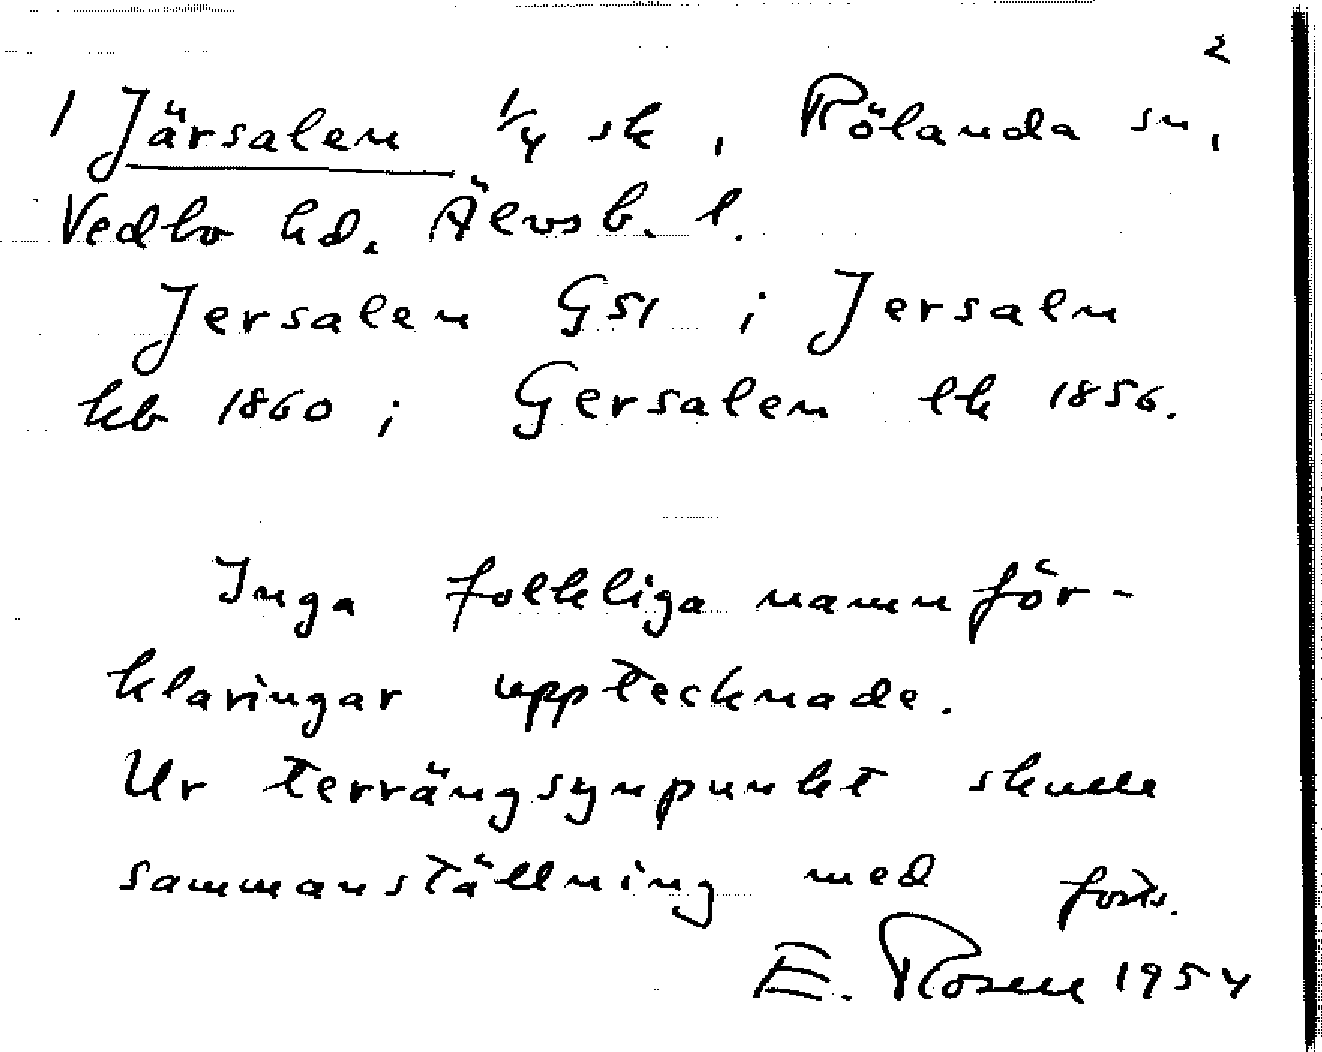 2
1 Järsalen 1/4 sk, Rölanda sn,
Vedbo hd. Älvsb. l.
Jersalen GS1 ; Jersaln
kb 1860 ; Gersalen lk 1856.
Inga folkliga namnför-
klaringar upptecknade.
Ur terrängsynpunkt skulle
sammanställning med forts.
E. Rosell 1954